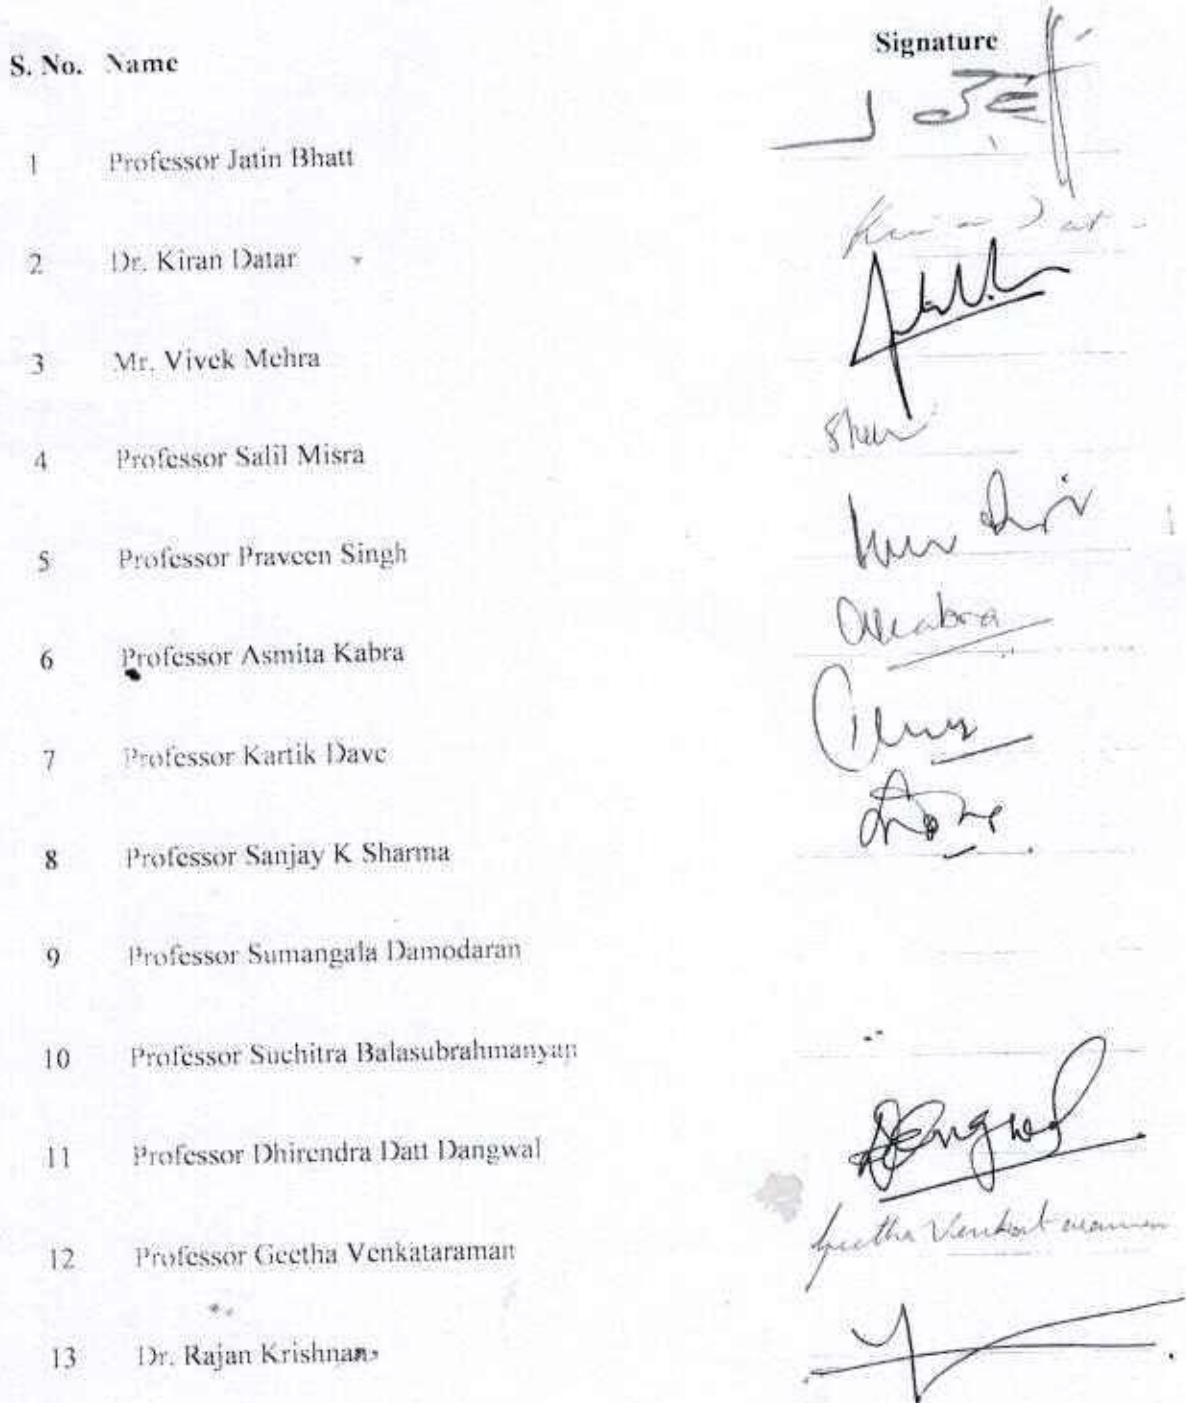 S. No. Name Signature
1 Professor Jatin Bhatt
2 Dr. Kiran Datar
3 Mr. Vivek Mehra
4 Professor Salil Misra
5 Professor Praveen Singh
6 Professor Asmita Kabra
7 Professor Kartik Dave
8 Professor Sanjay K Sharma
9 Professor Sumangala Damodaran
10 Professor Suchitra Balasubrahmanyan
11 Professor Dhirendra Datt Dangwal
12 Professor Geetha Venkataraman Geetha Venkataraman
13 Dr. Rajan Krishnan